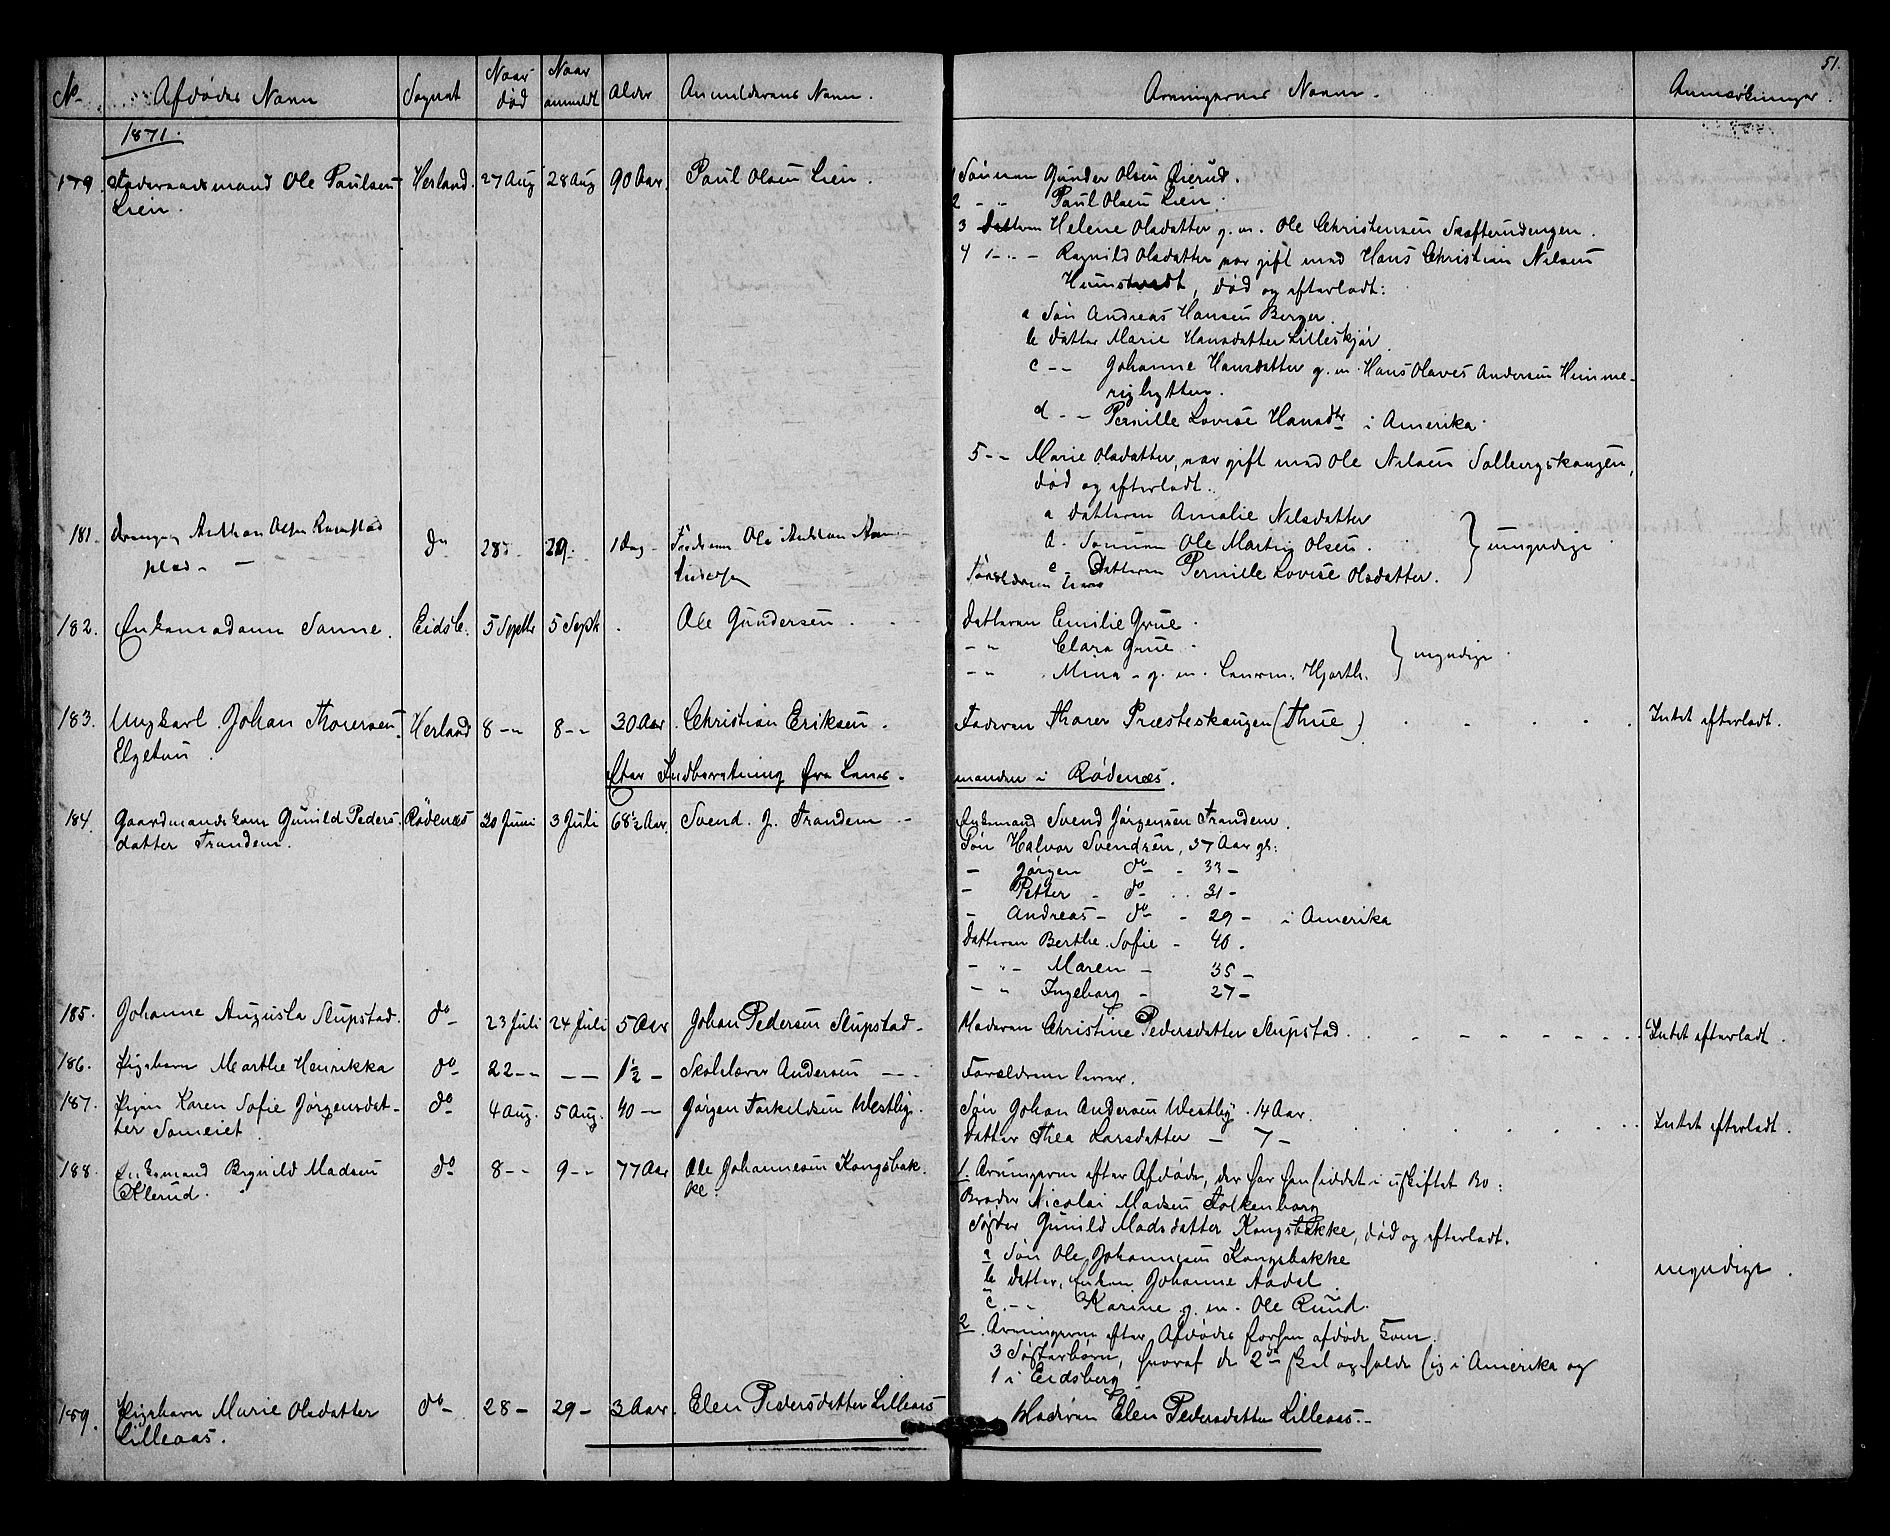 51.
No Afdødes Navn Sognet Naar død Naar anmeldt Alder Anmelderens Navn. Arvingernes Navne. Anmærkninger.
1871.
179. Føderaadsmand Ole Paulsen Herland. 27 Aug 28 Aug 90 Aar. Paul Olsen Lien. 1 Sønnen Gunder Olsen Øierud.
Lien. 2 - - Paul Olsen Lien.
3 Datteren Helene Olsdatter g. m. Ole Christensen Skofterudengen.
4 - - - Ragnild Olsdatter var gift med Hans Christian Nilsen
død og efterladt:
a Søn Andreas Hansen Berger.
b Datter Marie Hansdatter Lilleskjør
c - - Johanne Hansdatter g. m. Hans Olaves Andersen Himme-
righytten.
d - - Pernille Lovise Hansdtr i Amerika.
5 - - Marie Olsdatter, var gift med Ole Nilsen Solbergskougen,
død og efterladt.
a Datteren Amalie Nilsdatter
181. Drengen Anthon Olsen do 28 - 29. 1 Dag - Faderen Ole Anthon b. Sønnen Ole Martin Olsen. } umyndige
plad - - Andersen c - Datteren Pernille Lovise Olsdatter.
Forældrene lever
182. Enkemadam Sanne. Eidsb. 5 Septbr 5 Sept. Ole Gundersen. Datteren Emilie Grue.
- - Clara Grue - } myndige.
- - Mina - g. m. Lensm. Hjorth.
183. Ungkarl Johan Thoresen Herland 8 - - 8 - - 30 Aar. Christian Eriksen. Faderen Thorer Præsteskougen (Thue) Intet efterladt.
Elgetun.
Efter Indberetning fra Lens-
manden i Rødenæs.
184. Gaardmandskone Gunild Peders- Rødenæs 30 Juni 3 Juli 68½ Aar. Svend. J. Trandem - - Enkemand Svend Jørgensen Trandem.
datter Trandem. Søn Halvor Svendsen, 37 Aar gl:
- Jørgen do - 33 -
- Petter - do - 31 -
- Andreas - do - 29 - i Amerika
Datteren Berthe Sofie - 40.
- - - Maren - 35 -
- - Ingeborg - 27 -
185. Johanne Augusta Slupstad. do - 23 Juli 24 Juli 5 Aar Johan Pedersen Slupstad - Moderen Christine Pedersdatter Slupstad. Intet efterladt.
186. Pigebarn Marthe Henrikka do - 22 - - - - 1½ - Skolelærer Andersen - - - Forældrene lever.
187. Pigen Karen Sofie Jørgensdat- do - 4 Aug. 5 Aug. 40 - - Jørgen Torkildsen Westby. Søn Johan Andersen Westby. 14 Aar.
ter Someiet. Datter Thea Larsdatter - 7 - Intet efterladt.
188. Enkemand Bryuild Madsen do - 8 - - 9 - - 77 Aar Ole Johannesen Kongsbak- 1. Arvingerne efter Afdøde, der har hensiddet i uskiftet Bo:
Klerud. ke. Broder Nicolai Madsen Folkenborg
Søster Gunild Madsdatter Kongsbakke, død og efterladt.
a Søn Ole Johannesen Kongsbakke
b Datter, Enken Johanne Aadal myndige.
c. - - Karine g. m. Ole Ruud.
2. Arvingerne efter Afdødes forhen afdøde Kone.
3 Søsterbørn, hvoraf de 2de skal opholde sig i Amerika og
1 i Eidsberg
189. Pigebarn Marie Olsdatter do - 28 - 29 - 3 Aar. Elen Pedersdatter Lilleaas Moderen Elen Pedersdatter Lilleaas. -
Lilleaas.